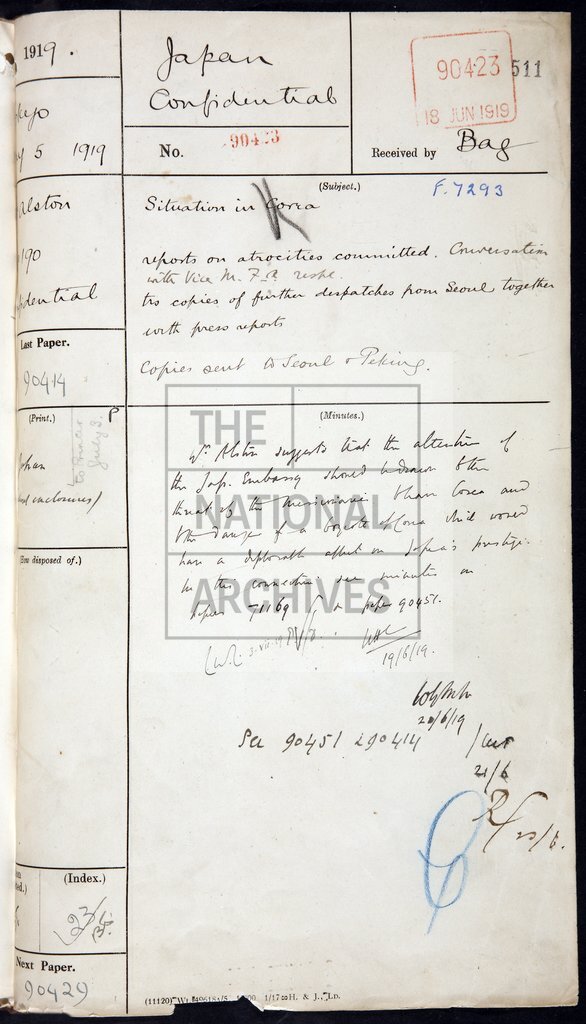 1919.
Japan
Confidential
No. 90423
90423
18 JUN 1919
511
Received by Bag
5 1919
Alston
190
Last Paper.
90414
(Print.)
P
July 3.
(How disposed of.)
(Index.)
Next Paper.
90429
(Subject.)
F. 7293
Situation in Corea
K
reports on atrocities committed. Conversation
with Vice M. F. A. respg.
trs copies of further despatches from Seoul together
with press reports
Copies sent to Seoul & Peking.
(Minutes.)
Mr. Alston suggests that the attention of
the Jap. Embassy should be drawn to the
threat of the missionaries to leave Corea and
to the danger of a boycott of Corea which would
have a deplorable effect on Japan's prestige.
In this connection see minutes on
papers 71169 & on paper 90451.
19/6/19.
20/6/19
See 90451 & 90414
21/6
23/6.
THE
NATIONAL
ARCHIVES
(11120) 1/17 H. & J., Ld.